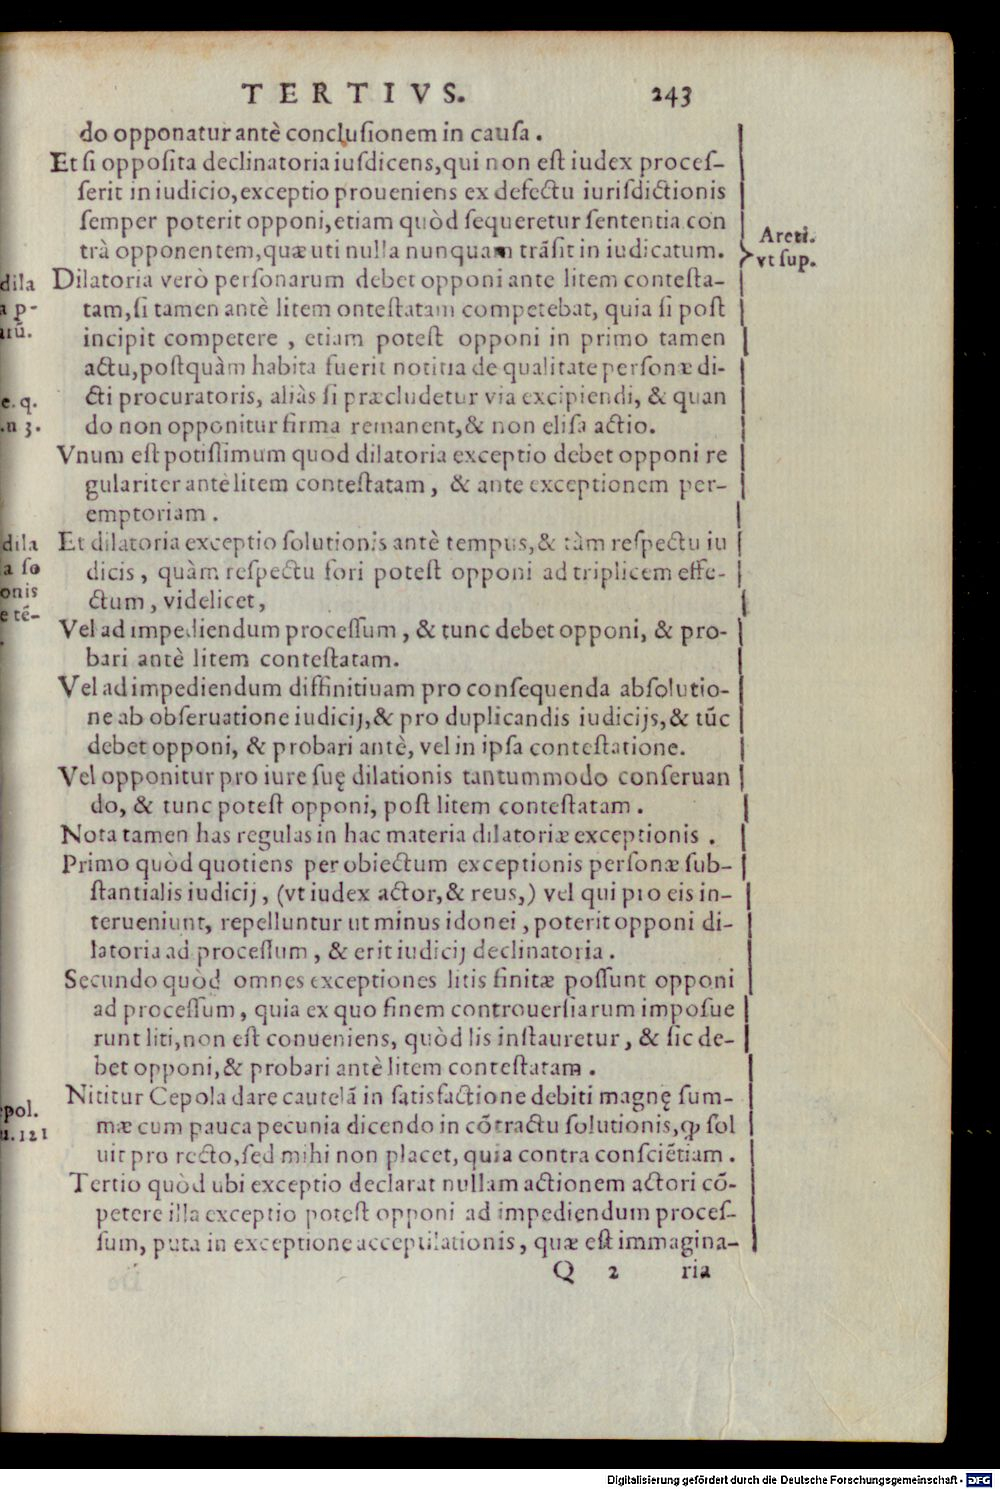 TERTIVS. 243
do opponatur antè conclusionem in causa.
Et si opposita declinatoria iusdicens, qui non est iudex proces-
serit in iudicio, exceptio proueniens ex defectu iurisdictionis
semper poterit opponi, etiam quòd sequeretur sententia con
trà opponentem, quæ uti nulla nunquam trãsit in iudicatum.
Areti.
vt sup.
Dilatoria verò personarum debet opponi ante litem contesta-
tam, si tamen antè litem ontestatam competebat, quia si post
incipit competere, etiam potest opponi in primo tamen
actu, postquàm habita fuerit notitia de qualitate personæ di-
cti procuratoris, aliàs si præcludetur via excipiendi, & quan
do non opponitur firma remanent, & non elisa actio.
dila
a p-
e. q.
.n 3.
Vnum est potissimum quod dilatoria exceptio debet opponi re
gulariter antè litem contestatam, & ante exceptionem per-
emptoriam.
Et dilatoria exceptio solutionis antè tempus, & tàm respectu iu
dicis, quàm respectu fori potest opponi ad triplicem effe-
ctum, videlicet,
dila
a so
onis
e tẽ-
Vel ad impediendum processum, & tunc debet opponi, & pro-
bari antè litem contestatam.
Vel ad impediendum diffinitiuam pro consequenda absolutio-
ne ab obseruatione iudicij, & pro duplicandis iudicijs, & tũc
debet opponi, & probari antè, vel in ipsa contestatione.
Vel opponitur pro iure suę dilationis tantummodo conseruan
do, & tunc potest opponi, post litem contestatam.
Nota tamen has regulas in hac materia dilatoriæ exceptionis.
Primo quòd quotiens per obiectum exceptionis personæ sub-
stantialis iudicij, (vt iudex actor, & reus,) vel qui pro eis in-
terueniunt, repelluntur ut minus idonei, poterit opponi di-
latoria ad processum, & erit iudicij declinatoria.
Secundo quòd omnes exceptiones litis finitæ possunt opponi
ad processum, quia ex quo finem controuersiarum imposue
runt liti, non est conueniens, quòd lis instauretur, & sic de-
bet opponi, & probari antè litem contestatam.
Nititur Cepola dare cautelã in satisfactione debiti magnę sum-
mæ cum pauca pecunia dicendo in cõtractu solutionis, ꝙ sol
uit pro recto, sed mihi non placet, quia contra consciẽtiam.
pol.
u. 121
Tertio quòd ubi exceptio declarat nullam actionem actori cõ-
petere illa exceptio potest opponi ad impediendum proces-
sum, puta in exceptione acceptilationis, quæ est immagina-
Q 2 ria
Digitalisierung gefördert durch die Deutsche Forschungsgemeinschaft - DFG